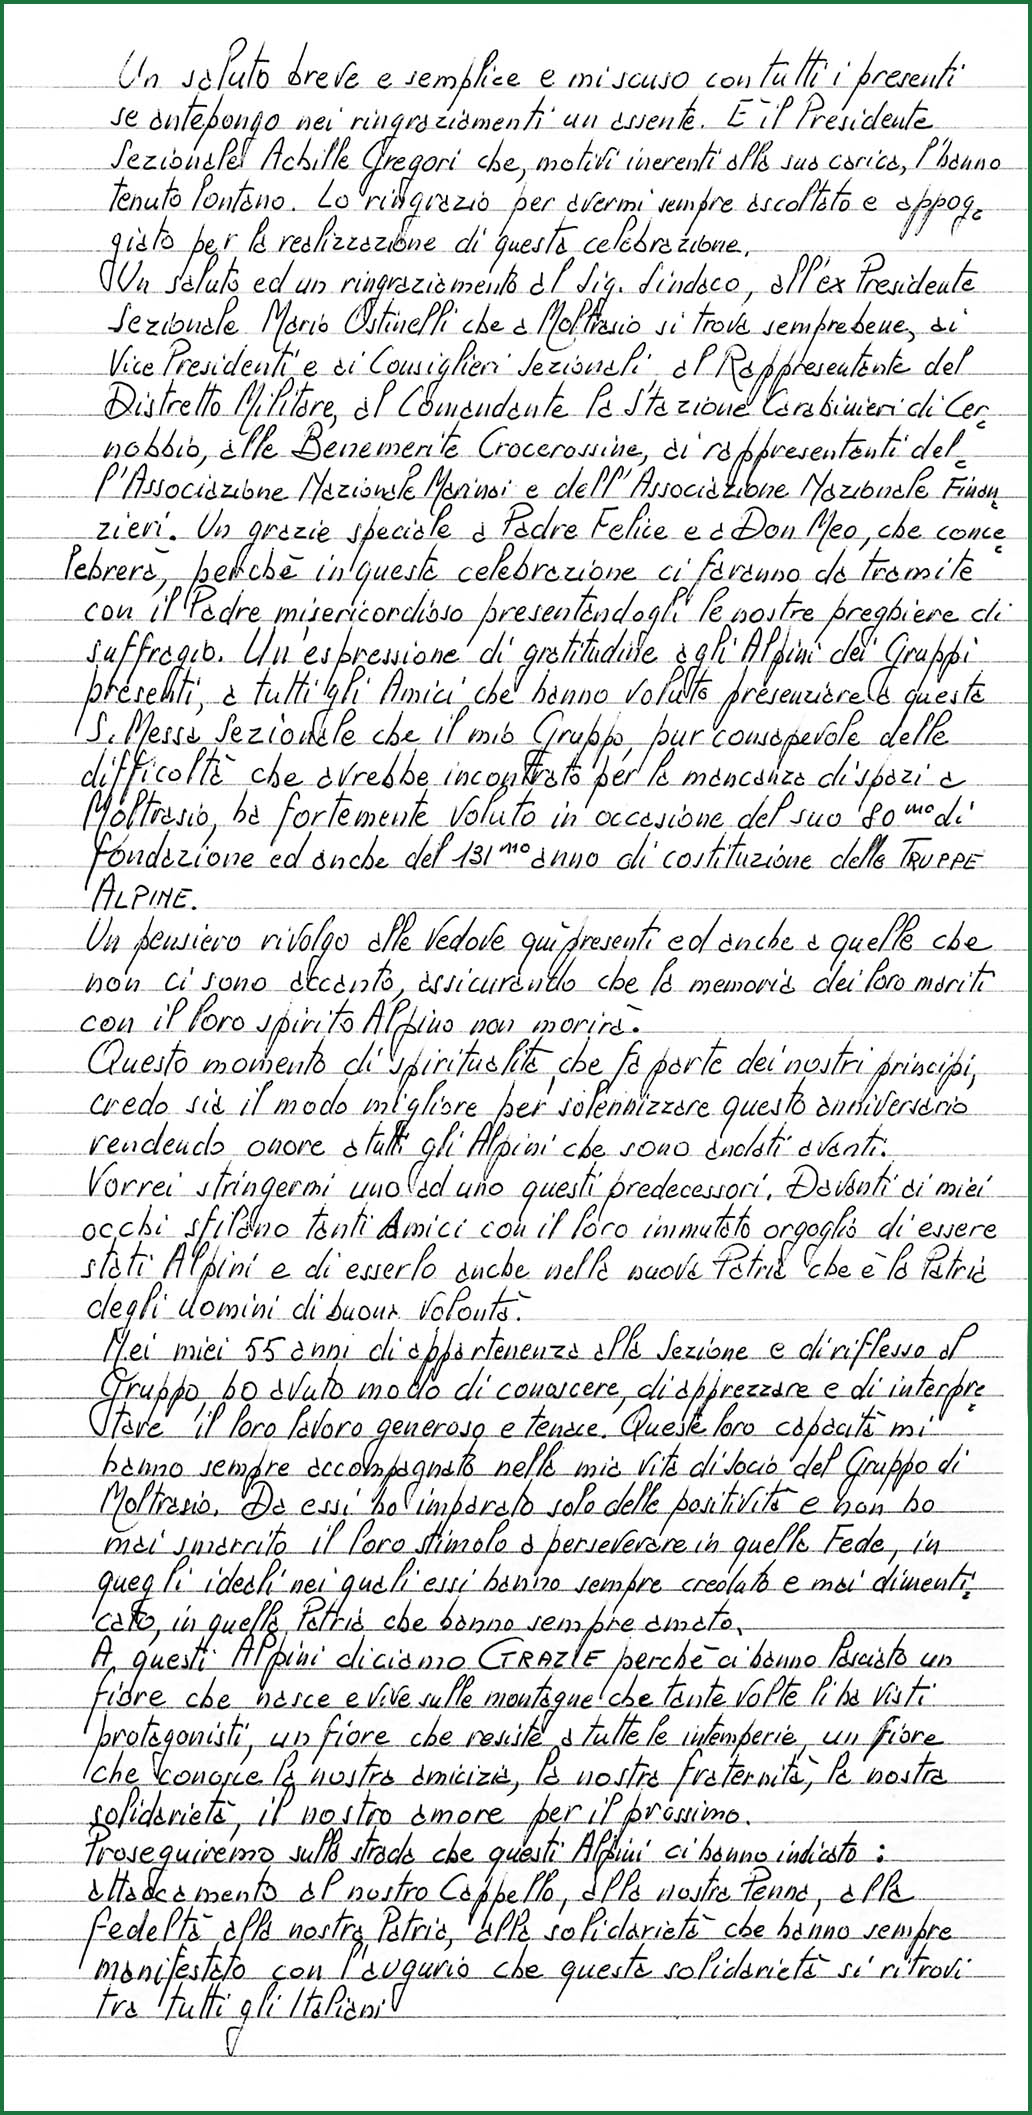 Un saluto breve e semplice e mi scuso con tutti i presenti
se antepongo nei ringraziamenti un assente. È il Presidente
Sezionale Achille Gregori che, motivi inerenti alla sua carica, l'hanno
tenuto lontano. Lo ringrazio per avermi sempre ascoltato e appog=
giato per la realizzazione di questa celebrazione.
Un saluto ed un ringraziamento al Sig. Sindaco, all'ex Presidente
Sezionale Mario Ostinelli che a Moltrasio si trova sempre bene, ai
Vice Presidenti e ai Consiglieri Sezionali al Rappresentante del
Distretto Militare, al Comandante la Stazione Carabinieri di Cer=
nobbio, alle Benemerite Crocerossine, ai rappresentanti del=
l'Associazione Nazionale Marinai e dell'Associazione Nazionale Finan=
zieri. Un grazie speciale a Padre Felice e a Don Meo, che conce=
lebrerà, perchè in questa celebrazione ci faranno da tramite
con il Padre misericordioso presentandogli le nostre preghiere di
suffragio. Un'espressione di gratitudine agli Alpini dei Gruppi
presenti, a tutti gli Amici che hanno voluto presenziare a questa
S. Messa Sezionale che il mio Gruppo, pur consapevole delle
difficoltà che avrebbe incontrato per la mancanza di spazi a
Moltrasio, ha fortemente voluto in occasione del suo 80mo di
fondazione ed anche del 131mo anno di costituzione delle TRUPPE
ALPINE.
Un pensiero rivolgo alle Vedove quì presenti ed anche a quelle che
non ci sono accanto, assicurando che la memoria dei loro mariti
con il loro spirito Alpino non morirà.
Questo momento di spiritualità, che fa parte dei nostri principi,
credo sia il modo migliore per solennizzare questo anniversario
rendendo onore a tutti gli Alpini che sono andati avanti.
Vorrei stringermi uno ad uno questi predecessori. Davanti ai miei
occhi sfilano tanti Amici con il loro immutato orgoglio di essere
stati Alpini e di esserlo anche nella nuova Patria che è la Patria
degli Uomini di buona Volontà.
Nei miei 55 anni di appartenenza alla Sezione e di riflesso al
Gruppo, ho avuto modo di conoscere, di apprezzare e di interpre=
tare il loro lavoro generoso e tenace. Queste loro capacità mi
hanno sempre accompagnato nella mia vita di Socio del Gruppo di
Moltrasio. Da essi ho imparato solo delle positività e non ho
mai smarrito il loro stimolo a perseverare in quella Fede, in
quegli ideali nei quali essi hanno sempre creduto e mai dimenti=
cato, in quella Patria che hanno sempre amato.
A questi Alpini diciamo GRAZIE perchè ci hanno lasciato un
fiore che nasce e vive sulle montagne che tante volte li ha visti
protagonisti, un fiore che resiste a tutte le intemperie, un fiore
che conosce la nostra amicizia, la nostra fraternità, la nostra
solidarietà, il nostro amore per il prossimo.
Proseguiremo sulla strada che questi Alpini ci hanno indicato:
attaccamento al nostro Cappello, alla nostra Penna, alla
fedeltà alla nostra Patria, alla solidarietà che hanno sempre
manifestato con l'augurio che questa solidarietà si ritrovi
tra tutti gli Italiani